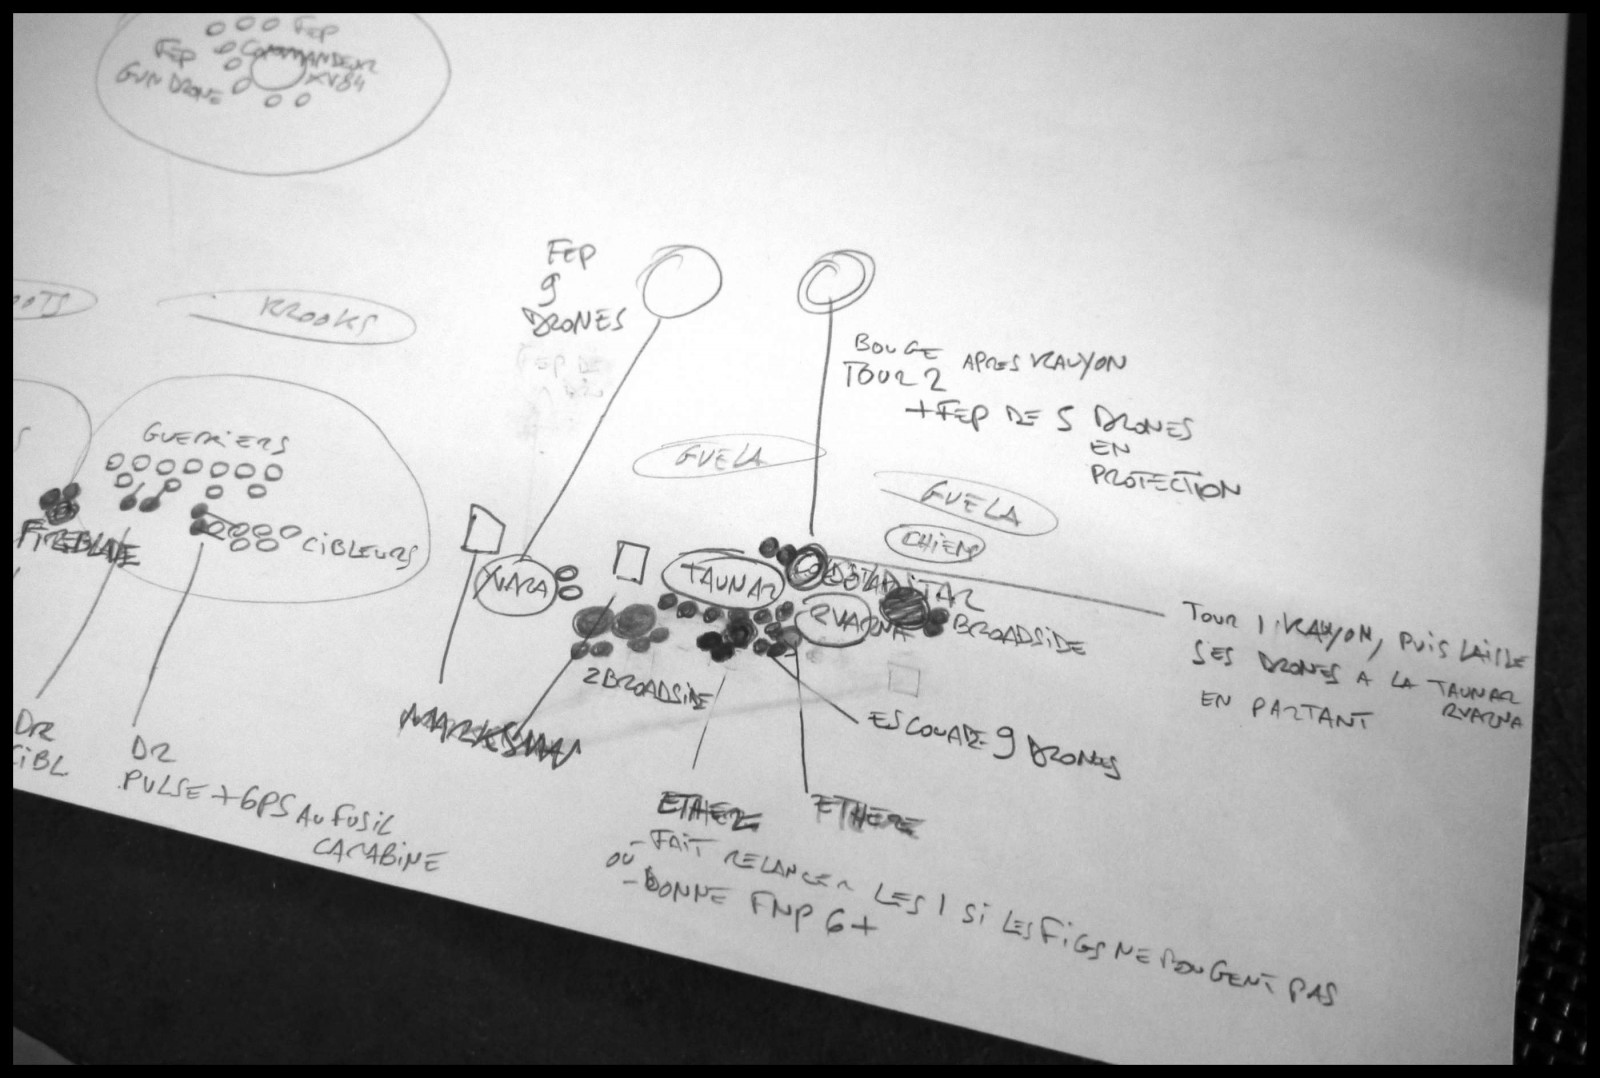 FEP
FEP
COMMANDEUR
XV84
GUN DRONE
FEP
9
DRONES
KROOKS
BOUGE APRES KAUYON
TOUR 2
+FEP DE 5 DRONES
EN
PROTECTION
GUELA
GUELA
CHIENS
GUERRIERS
FIREBLADE
CIBLEURS
YVARA
TAUNAR
COLDSTAR
RVARNA
BROADSIDE
2 BROADSIDE
TOUR 1 KAUYON, PUIS LAISSE
SES DRONES A LA TAUNAR
EN PARTANT RVARNA
MARKSMAN
ESCOUADE 9 DRONES
DR
CIBL
DR
PULSE + GPS AU FUSIL
CARABINE
ETHERE
ETHERE
- FAIT RELANCER LES 1 SI LES FIGS NE BOUGENT PAS
OU
- DONNE FNP 6+